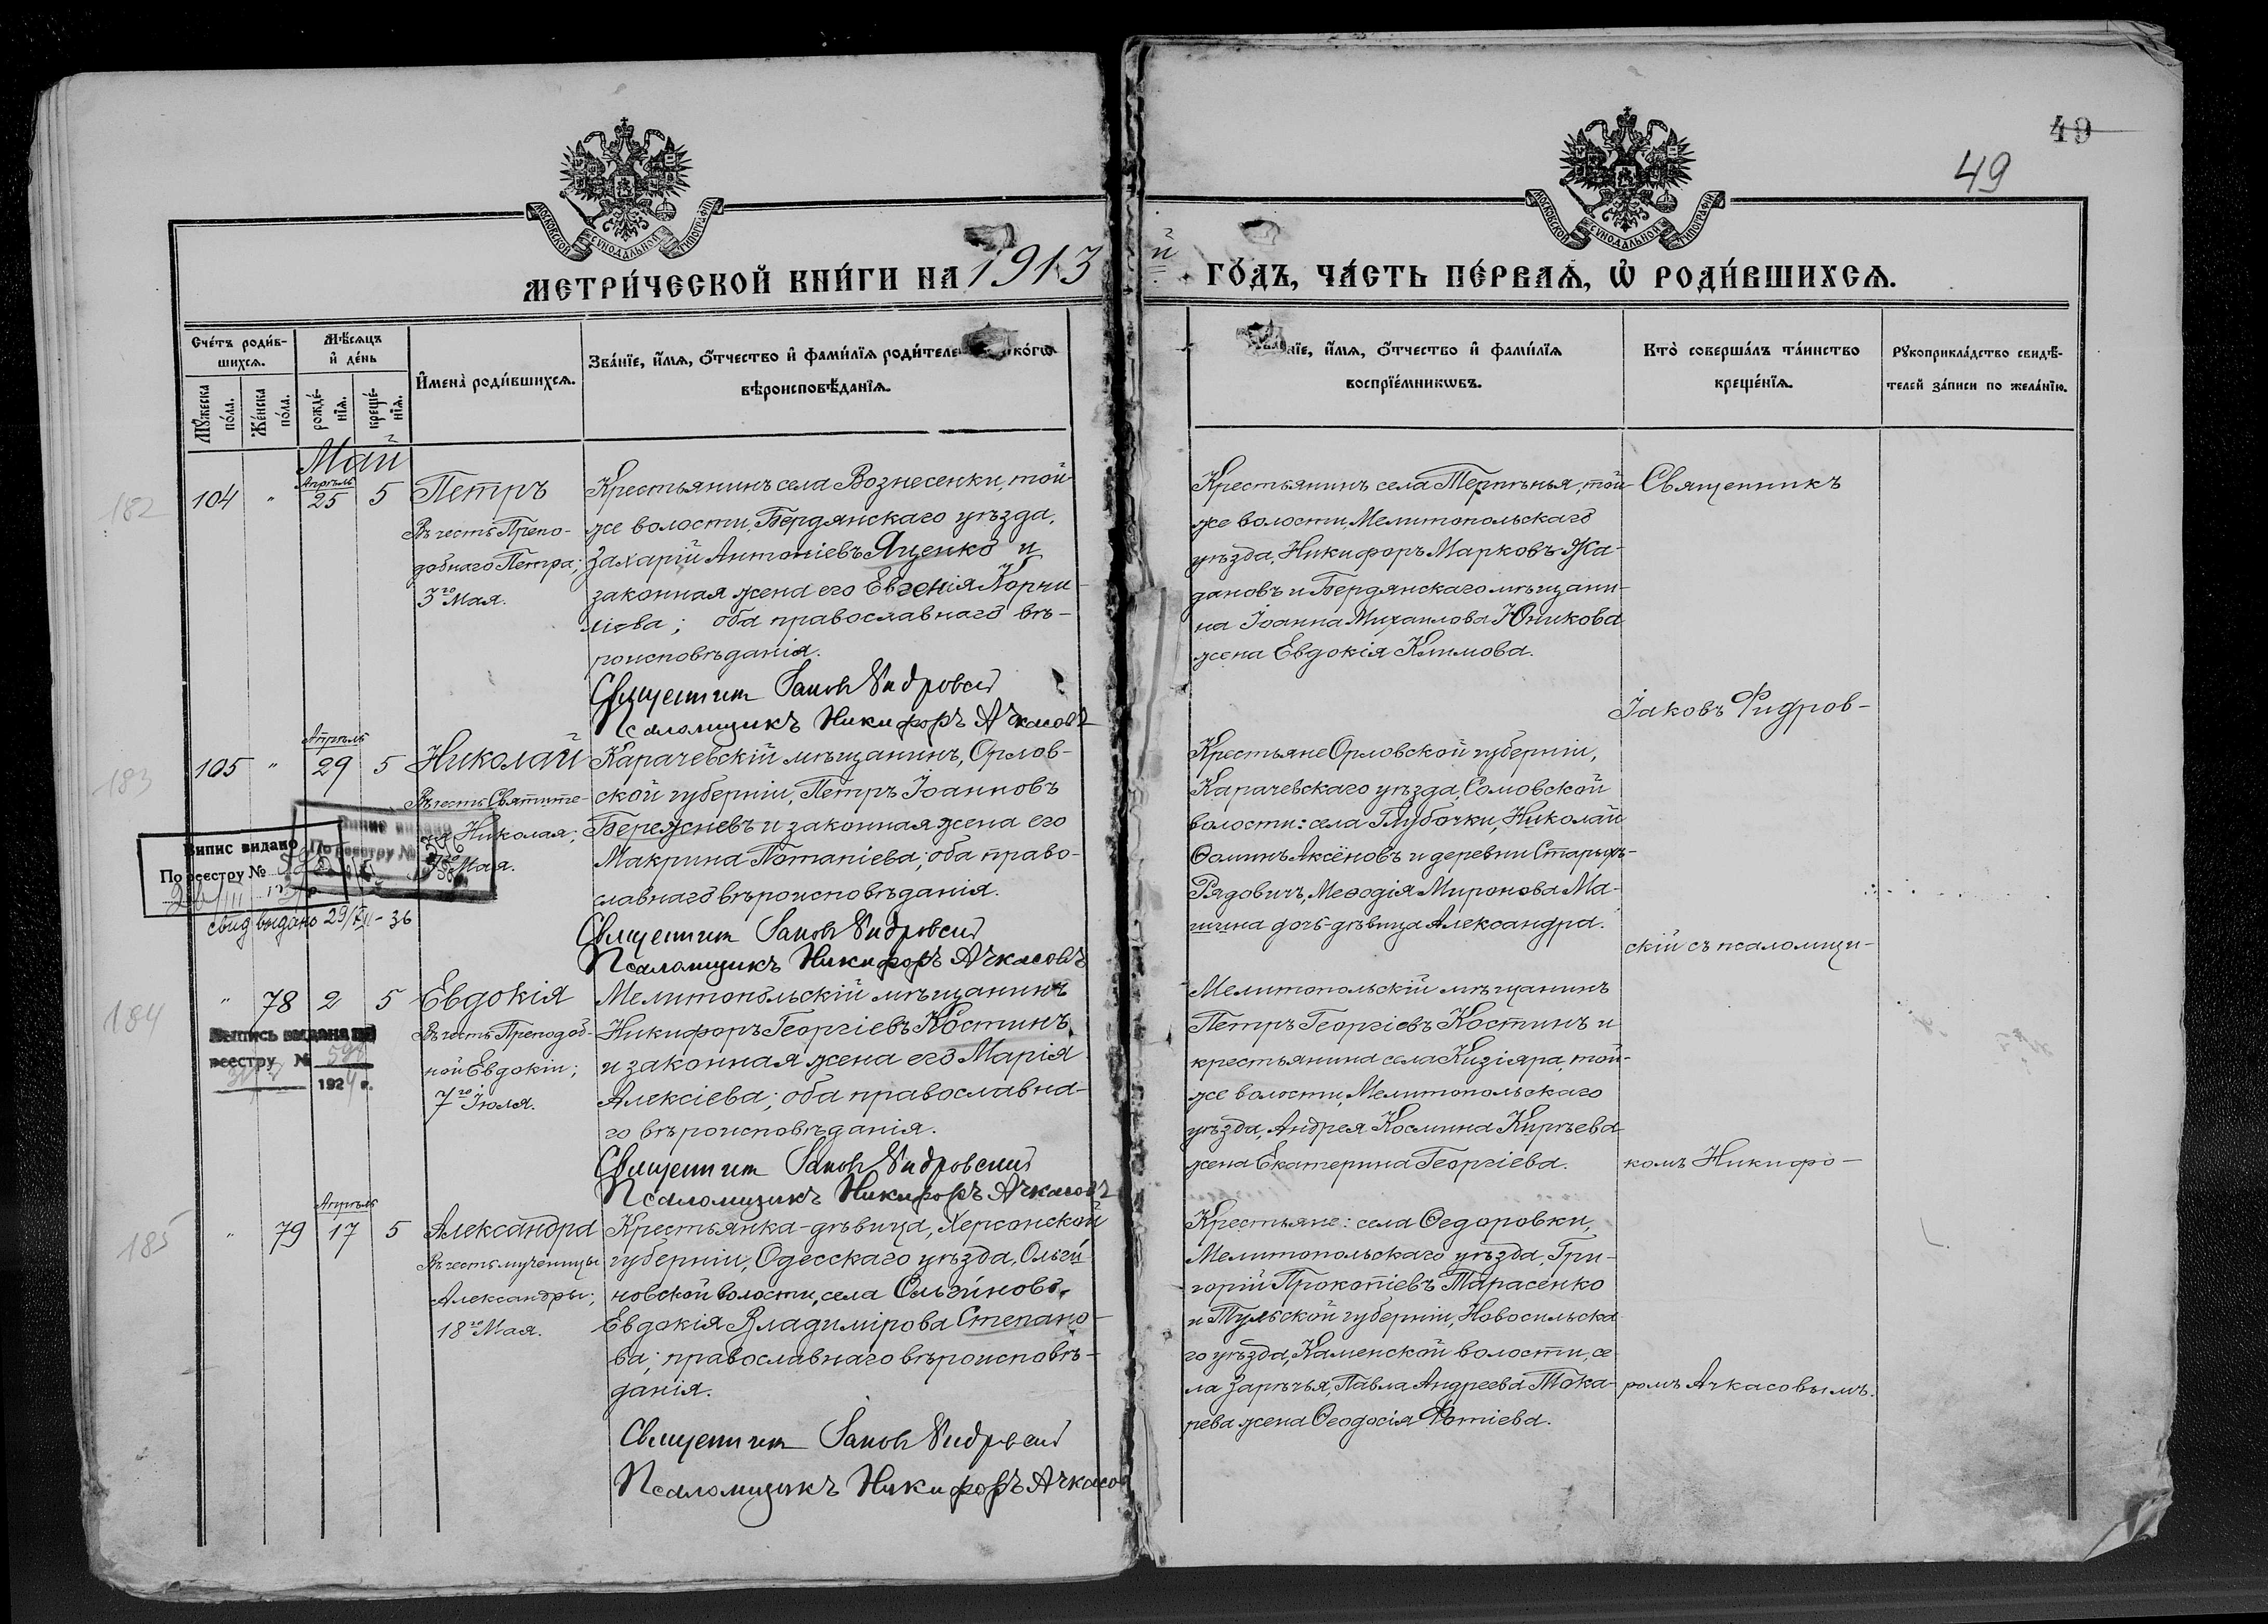 49
49
МОСКОВСКОЙ СУНОДАЛЬНОЙ ТИПОГРАФІИ
МОСКОВСКОЙ СУНОДАЛЬНОЙ ТИПОГРАФІИ
МЕТРИ́ЧЕСКОЙ КНИ́ГИ НА 1913 й ГО́ДЪ, ЧА́СТЬ ПЕ́РВАѦ, Ѡ҆ РОДИ́ВШИХСѦ.
Сче́тъ роди́в-
шихсѧ.
Мꙋ́жеска
по́ла.
Же́нска
по́ла.
Мѣ́сѧцъ
и҆ де́нь
рожде́-
нїѧ.
креще́-
нїѧ.
И҆мена̀ роди́вшихсѧ.
Зва́нїе, и҆́мѧ, ѻ҆́тчество и҆ фами́лїѧ роди́теле
ко́гѡ
вѣроисповѣ́данїѧ.
нїе, и҆́мѧ, ѻ҆́тчество и҆ фами́лїѧ
воспрїе́мникѡвъ.
Кто̀ соверша́лъ та́инство
креще́нїѧ.
Рꙋкоприкла́дство свидѣ́-
телей за́писи по жела́нїю.
Май
182
104 " Апрѣль 25 5
Петръ
Въ честь Препо-
добнаго Петра;
3го Мая.
Крестьянинъ села Вознесенки, той
же волости, Бердянскаго уѣзда,
Захарій Антоніевъ Яценко и
законная жена его Евгенія Корни-
ліева; оба православнаго вѣ-
роисповѣданія.
Священник Иаков Фидровский
Псаломщикъ Никифоръ Ачкасовъ
Крестьянинъ села Терпѣнья, той-
же волости, Мелитопольскаго
уѣзда, Никифоръ Марковъ Жа-
дановъ и Бердянскаго мѣщани-
на Іоанна Михаилова Юникова
жена Евдокія Климова.
Священникъ
Іаковъ Фидров-
183
105 " Апрѣль 29 5
Николай
Въ честь Святите-
ля Николая;
9го Мая.
Карачевскій мѣщанинъ, Орлов-
ской губерніи, Петръ Іоанновъ
Бережневъ и законная жена его
Макрина Потапіева; оба право-
славнаго вѣроисповѣданія.
Священник Иаков Фидровский
Псаломщикъ Никифоръ Ачкасовъ
Крестьяне Орловской губерніи,
Карачевскаго уѣзда, Сомовской
волости: села Глубочки, Николай
Ѳоминъ Аксёновъ и деревни Старыхъ-
Рядовичъ, Меѳодія Миронова Ма-
шина дочь-дѣвица Александра.
скій съ псаломщи-
Випис видано
По реестру №
По реестру №
свид выдано 29/VII-36
184
" 78 2 5
Евдокія
Въ честь Преподоб-
ной Евдокіи;
7го Іюля.
Мелитопольскій мѣщанинъ
Никифоръ Георгіевъ Костинъ
и законная жена его Марія
Алексіева; оба православна-
го вѣроисповѣданія.
Священник Иаков Фидровский
Псаломщикъ Никифоръ Ачкасовъ
Мелитопольскій мѣщанинъ
Петръ Георгіевъ Костинъ и
крестьянина села Кизіяра, той-
же волости, Мелитопольскаго
уѣзда, Андрея Космина Кирѣева
жена Екатерина Георгіева.
комъ Никифо-
Выпись выдана по
реестру №
1924 г.
185
" 79 Апрѣль 17 5
Александра
Въ честь мученицы
Александры;
18го Мая.
Крестьянка-дѣвица, Херсонской
губерніи, Одесскаго уѣзда, Ольги-
новской волости, села Ольгинова,
Евдокія Владимірова Степано-
ва; православнаго вѣроисповѣ-
данія.
Священник Иаков Фидровский
Псаломщикъ Никифоръ Ачкасов
Крестьяне: села Ѳедоровки,
Мелитопольскаго уѣзда, Гри-
горій Прокопіевъ Тарасенко
и Тульской губерніи, Новосильска-
го уѣзда, Каменской волости, се-
ла Зарѣчья, Павла Андреева Тока-
рева жена Ѳеодосія Фотіева.
ромъ Ачкасовымъ.